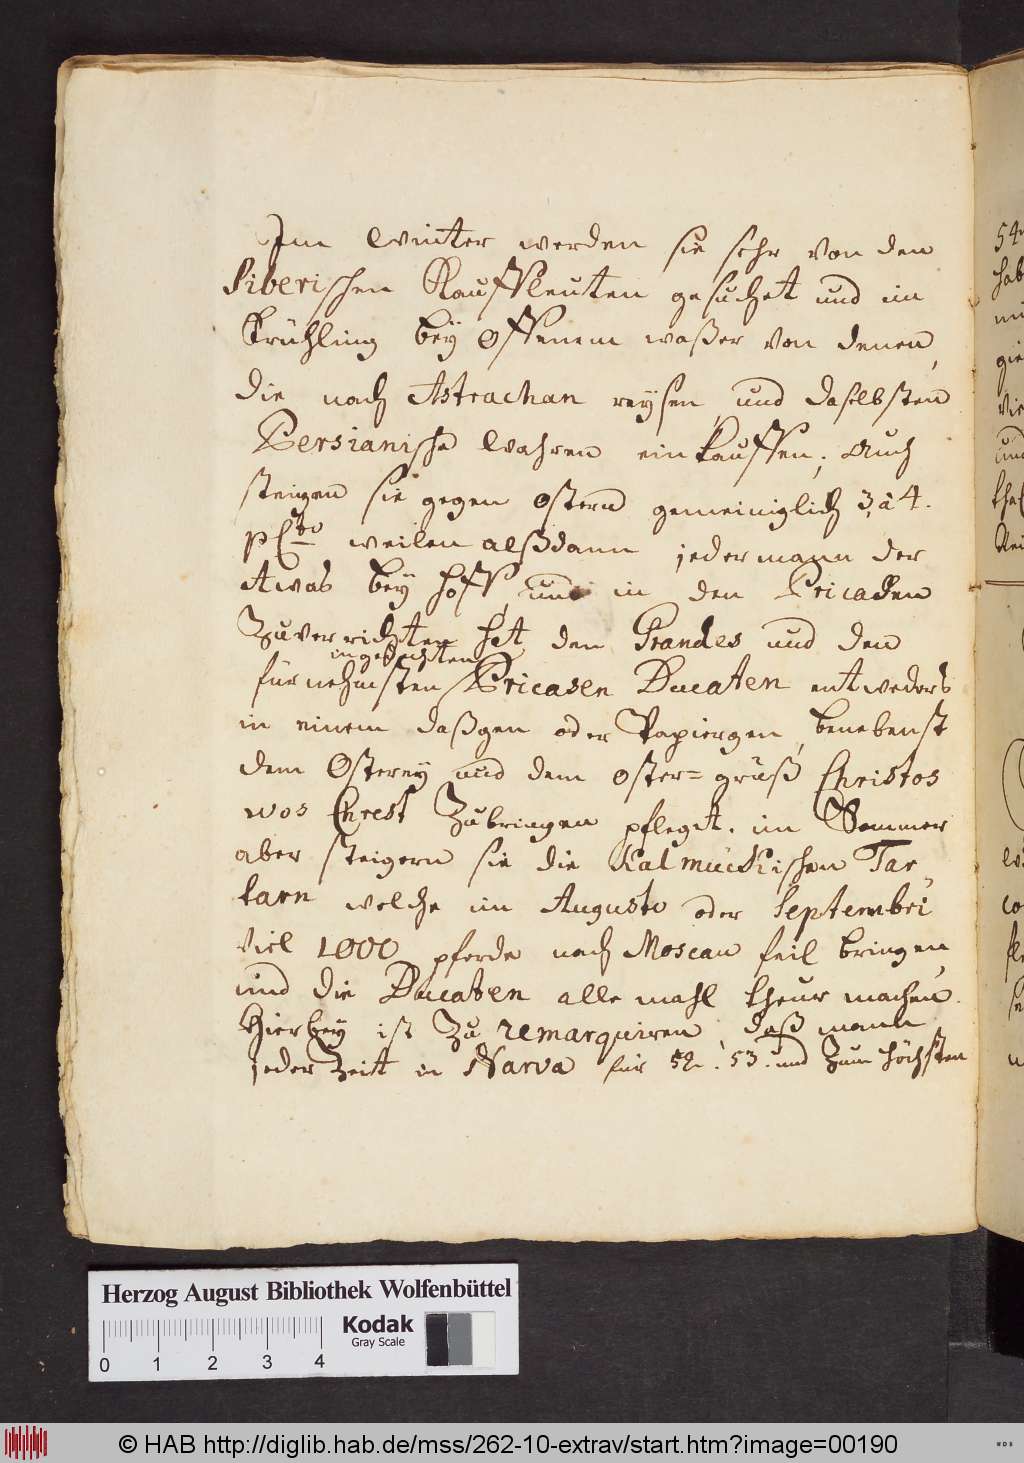 Im Winter werden sie sehr von den
Siberischen Kauffleuten gesuchet und im
Frühling bey offenem waßer von denen,
die nach Astrachan reysen und daselbsten
Persianische Wahren einkauffen, Auch
steigen sie gegen Ostern gemeiniglich 3 à 4.
pCto weilen alßdann jedermann der
Awas bey Hoff und in den Pricasen
Zuverrichten hat, den Grandes und den
ingedachten
fürnehmsten Pricasen Ducaten entweders
in einem daßgen oder Papiergen, benebenst
dem Osterey und dem Oster=gruß Christos
wos Chrest Zubringen pfleget. im Sommer
aber steigern sie die Kalmuckischen Tar
tarn welche im Augusto oder Septembri
viel 1000 pferde nach Moscau feil bringen,
und die Ducaten allemahl theur machen.
Hierbey ist Zu remarquiren, daß mann
jeder Zeit in Narva für 52. 53. und Zum höchsten
54
hab
gie
vie
und
Herzog August Bibliothek Wolfenbüttel
Kodak
Gray Scale
0 1 2 3 4
© HAB http://diglib.hab.de/mss/262-10-extrav/start.htm?image=00190